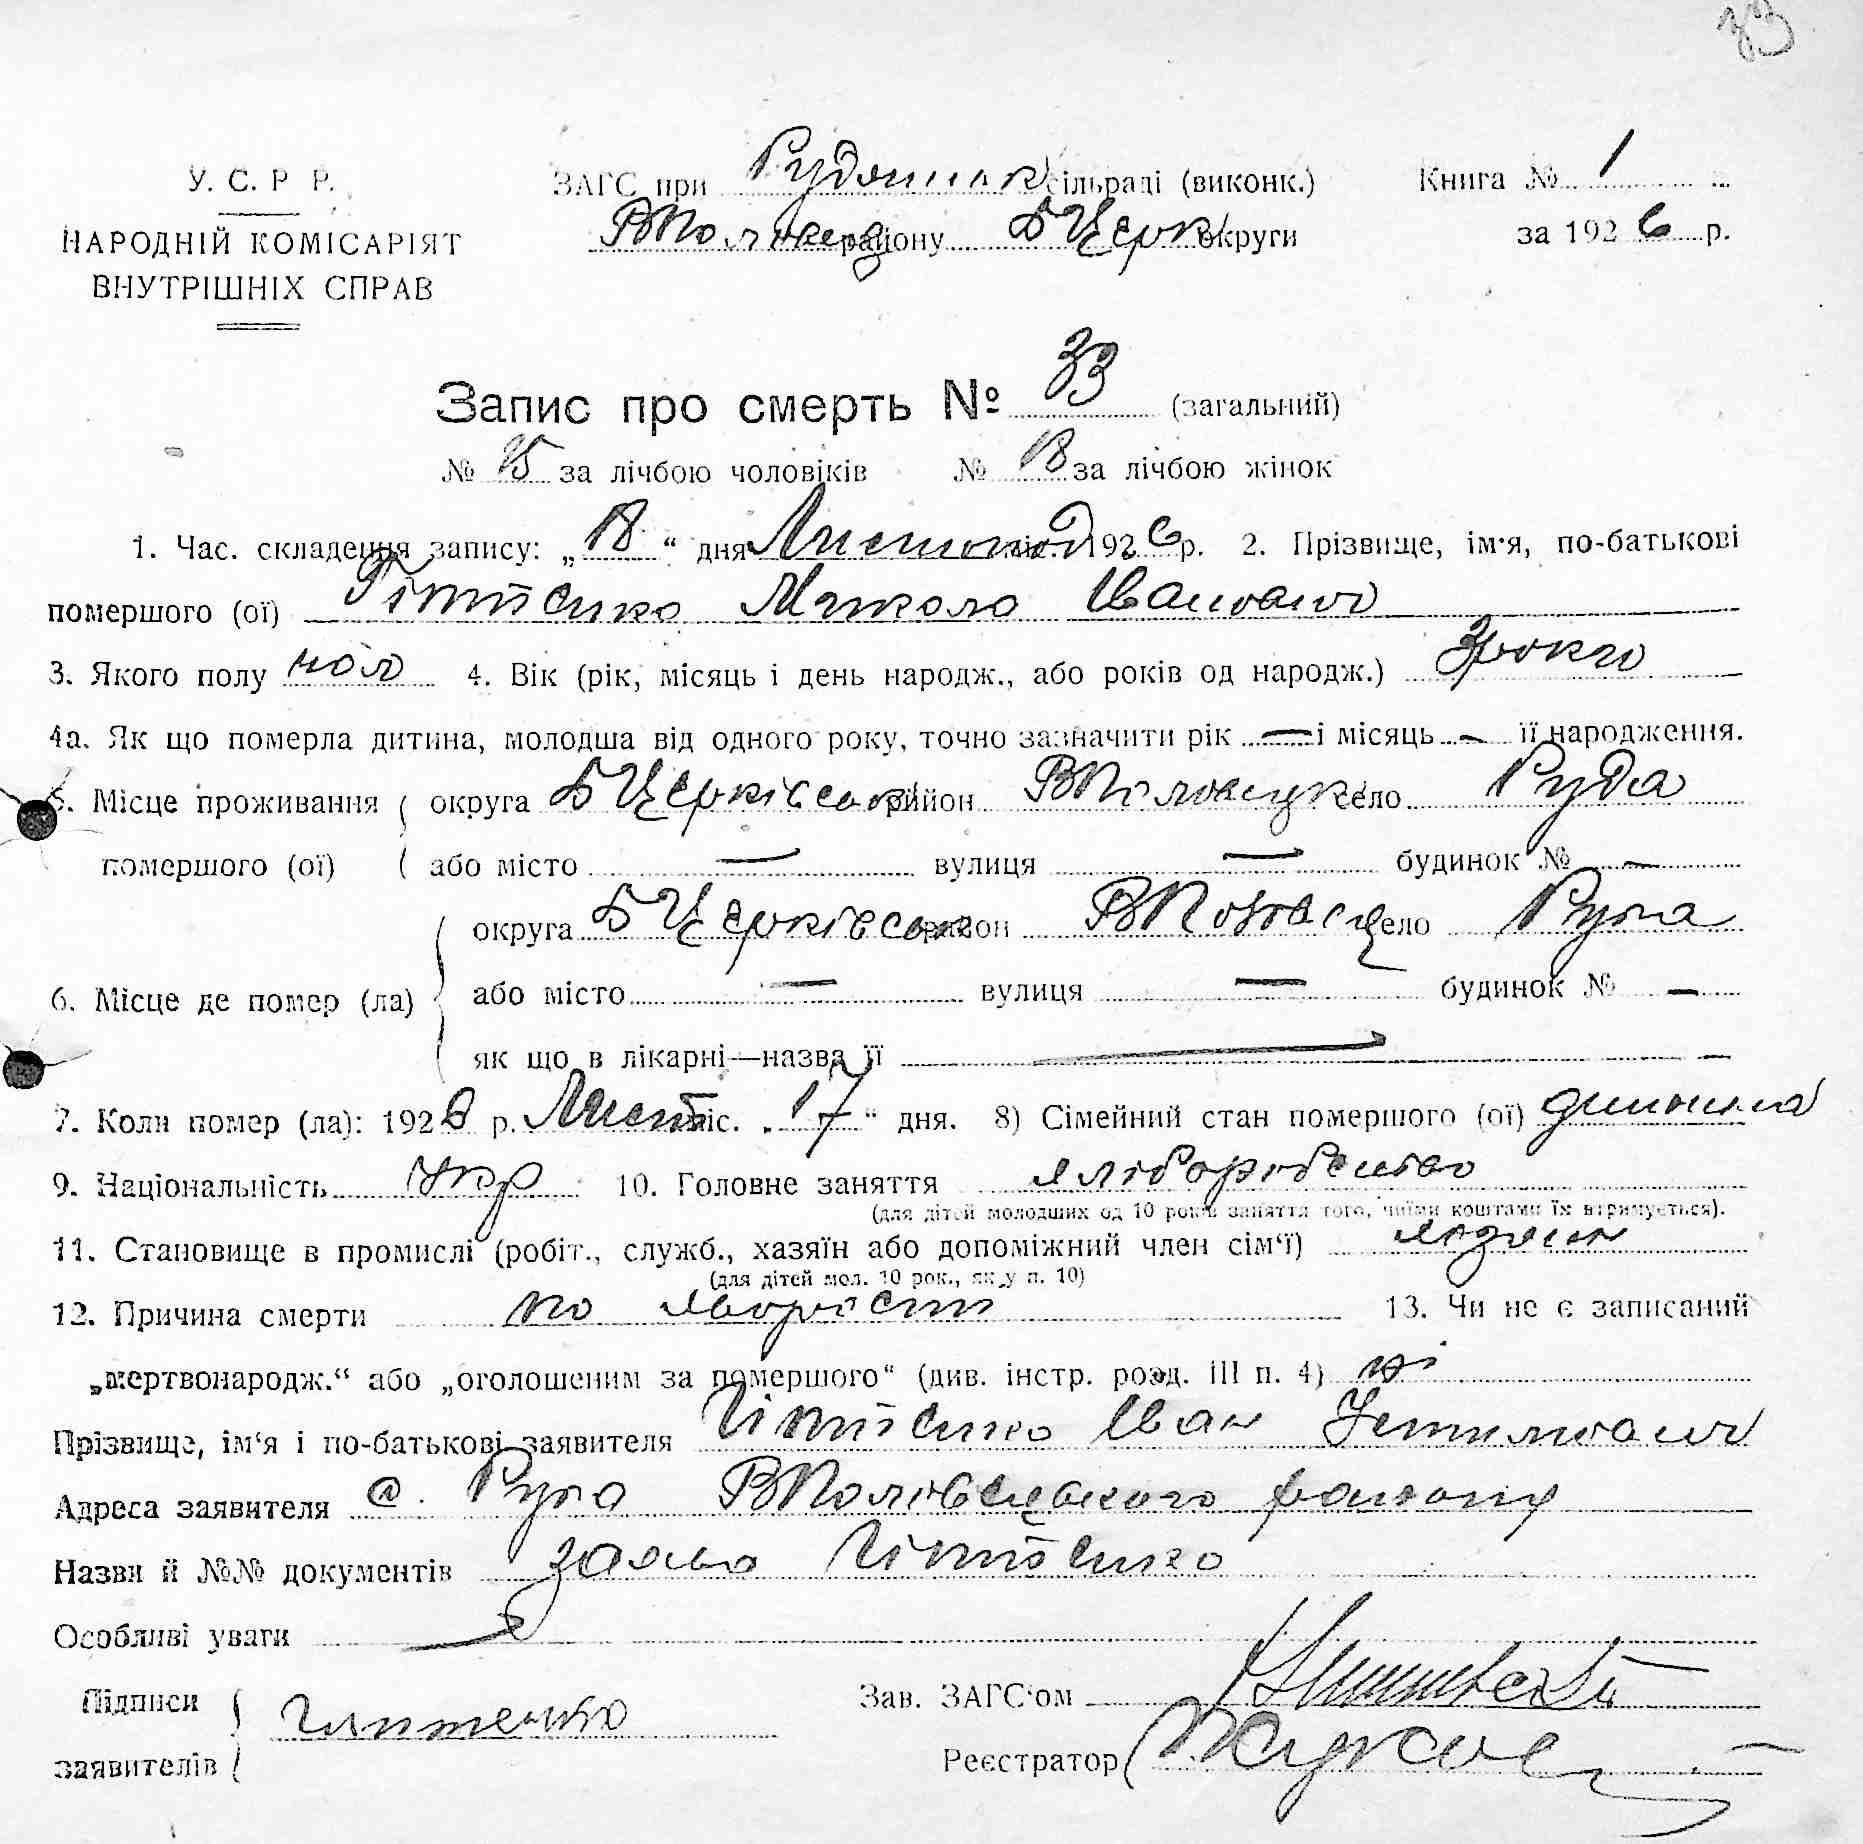 33
У. С. Р Р.
НАРОДНІЙ КОМІСАРІЯТ
ВНУТРІШНІХ СПРАВ
ЗАГС при Рудянськ сільраді (виконк.)
ВПоловец району БЦерк округи
Книга № 1
за 1926 р.
Запис про смерть № 33 (загальний)
№ 15 за лічбою чоловіків № 18 за лічбою жінок
1. Час. складення запису: „18“ дня Листопад міс. 1926 р. 2. Прізвище, ім'я, по-батькові
помершого (ої) Гітченко Микола Іванович
3. Якого полу чол 4. Вік (рік, місяць і день народж., або років од народж.) 3 роки
4а. Як що померла дитина, молодша від одного року, точно зазначити рік — і місяць — її народження.
5. Місце проживання округа БЦерківськ район ВПоловецьк село Руда
помершого (ої) або місто — вулиця — будинок № —
округа БЦерківськ район ВПоловец село Руда
6. Місце де помер (ла) або місто — вулиця — будинок № —
як що в лікарні—назва її —
7. Коли помер (ла): 1926 р. Лист міс. 17“ дня. 8) Сімейний стан помершого (ої) дитина
9. Національність укр 10. Головне заняття хліборобство
(для дітей молодших од 10 років заняття того, чиїми коштами їх втримується).
11. Становище в промислі (робіт., служб., хазяїн або допоміжний член сім'ї) хазяїн
(для дітей мол. 10 рок., як у п. 10)
12. Причина смерти по хворості 13. Чи не є записаний
„мертвонародж.“ або „оголошеним за помершого“ (див. інстр. розд. III п. 4) ні
Прізвище, ім'я і по-батькові заявителя Іван
Адреса заявителя с. Руда ВПоловецького району
Назви й №№ документів заява
Особливі уваги —
Підписи
заявителів
Зав. ЗАГС'ом
Реєстратор